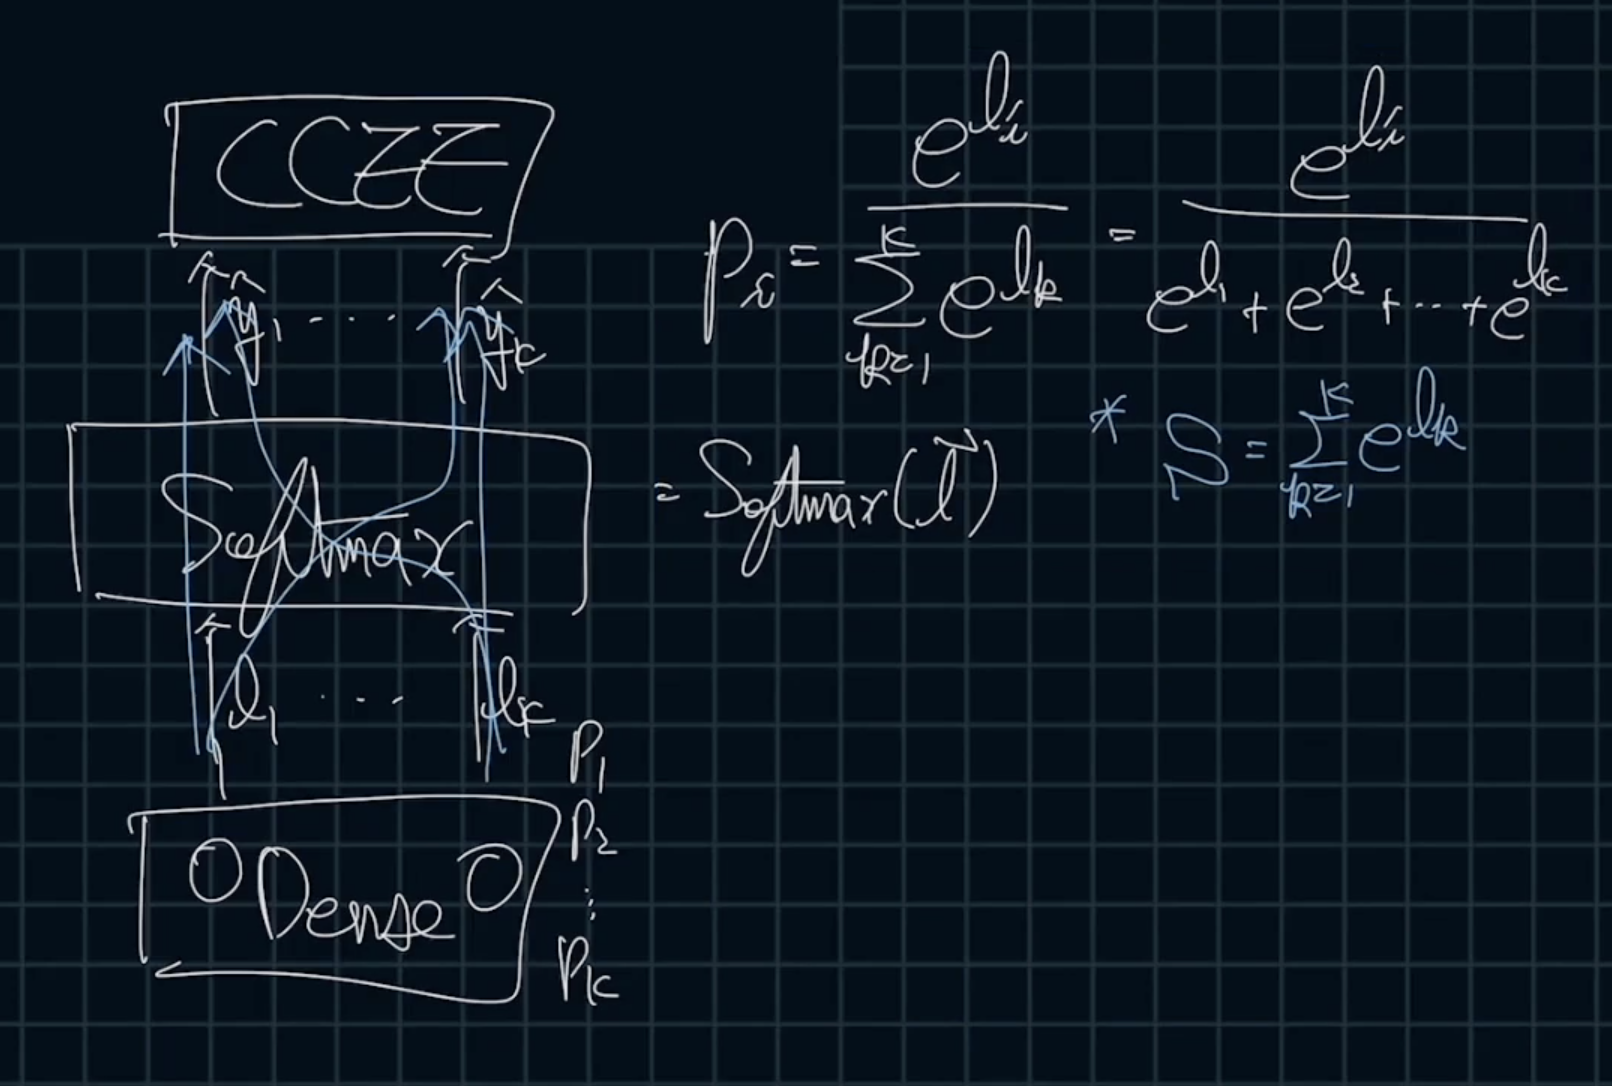 CCEE
ŷ₁ ... ŷ_K
Softmax
l₁ ... l_K
Dense
P₁
P₂
⋮
P_K
P_i = e^{l_i} / \sum_{k=1}^{K} e^{l_k} = e^{l_i} / (e^{l_1} + e^{l_2} + ... + e^{l_K})
= Softmax(\vec{l})
* S = \sum_{k=1}^{K} e^{l_k}